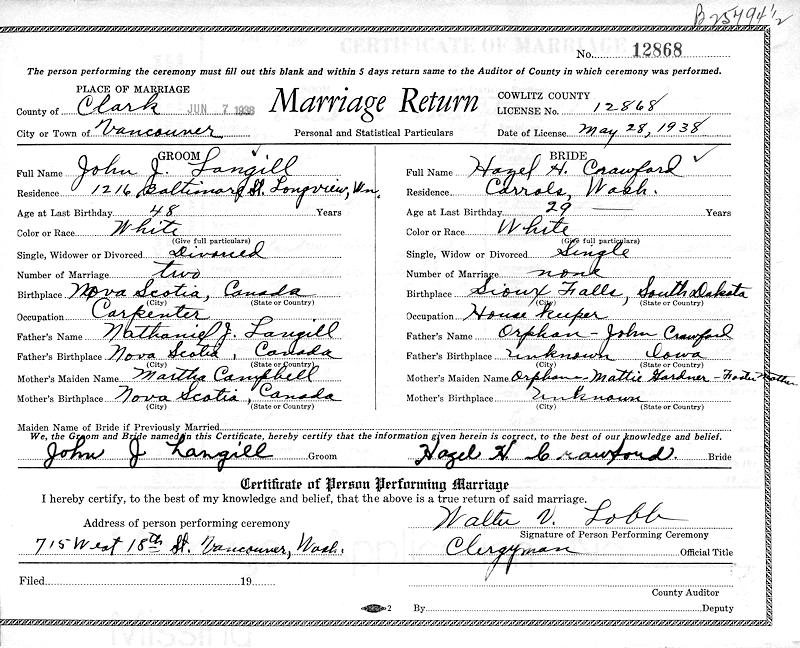 B25494½
No. 12868
The person performing the ceremony must fill out this blank and within 5 days return same to the Auditor of County in which ceremony was performed.
PLACE OF MARRIAGE
County of Clark JUN 7 1938
City or Town of Vancouver
Marriage Return
Personal and Statistical Particulars
COWLITZ COUNTY
LICENSE No. 12868
Date of License May 28, 1938
GROOM
Full Name John J. Langill
Residence 1216 Baltimore St. Longview, Wn.
Age at Last Birthday 48 Years
Color or Race White
(Give full particulars)
Single, Widower or Divorced Divorced
Number of Marriage two
Birthplace Nova Scotia, Canada
(City) (State or Country)
Occupation Carpenter
Father's Name Nathaniel J. Langill
Father's Birthplace Nova Scotia, Canada
(City) (State or Country)
Mother's Maiden Name Martha Campbell
Mother's Birthplace Nova Scotia, Canada
(City) (State or Country)
BRIDE
Full Name Hazel H. Crawford
Residence Carrols, Wash.
Age at Last Birthday 29 Years
Color or Race White
(Give full particulars)
Single, Widow or Divorced Single
Number of Marriage none
Birthplace Sioux Falls, South Dakota
(City) (State or Country)
Occupation House Keeper
Father's Name Orphan - John Crawford
Father's Birthplace Unknown Iowa
(City) (State or Country)
Mother's Maiden Name Orphan - Mattie Gardner - Foster Mother
Mother's Birthplace Unknown
(City) (State or Country)
Maiden Name of Bride if Previously Married
We, the Groom and Bride named in this Certificate, hereby certify that the information given herein is correct, to the best of our knowledge and belief.
John J Langill Groom Hazel H. Crawford. Bride
Certificate of Person Performing Marriage
I hereby certify, to the best of my knowledge and belief, that the above is a true return of said marriage.
Address of person performing ceremony
715 West 18th St. Vancouver, Wash.
Walter V. Lobb
Signature of Person Performing Ceremony
Clergyman Official Title
Filed 19
County Auditor
2 By Deputy